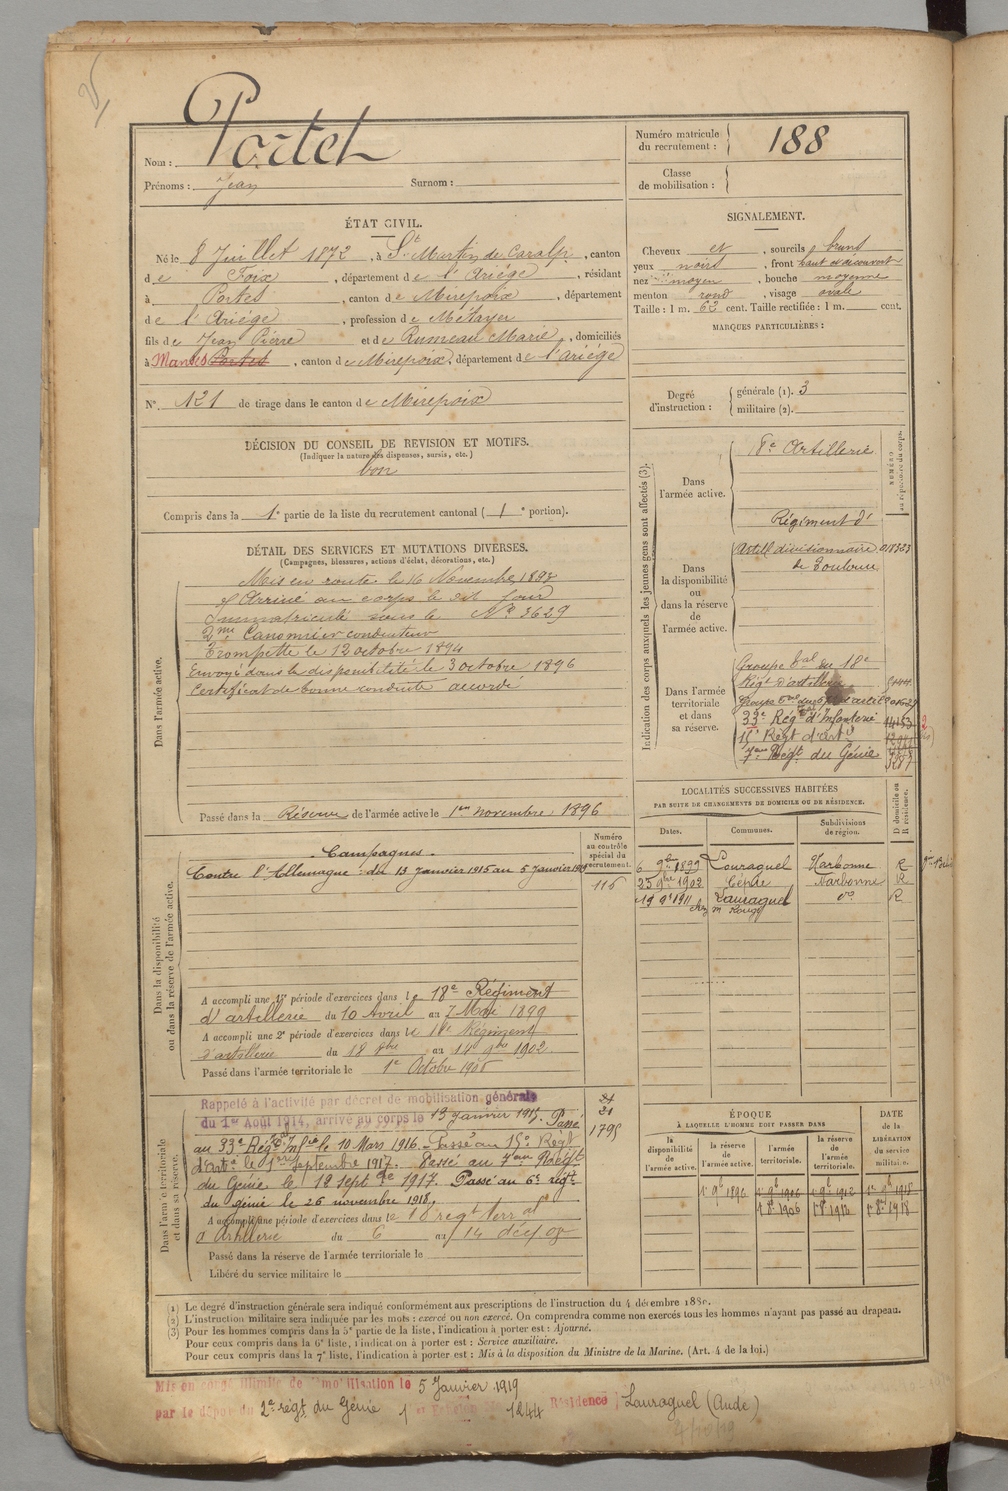 Nom : Portet
Prénoms : Jean Surnom :
Numéro matricule du recrutement : 188
Classe de mobilisation :
ÉTAT CIVIL.
Né le 8 Juillet 1872, à St Martin de Caralp, canton
de Foix, département de l'Ariège, résidant
à Portes, canton de Mirepoix, département
de l'Ariège, profession de Métayer
fils de Jean Pierre et de Rumeau Marie, domiciliés
à Manses Portes, canton de Mirepoix, département de l'Ariège
N° 121 de tirage dans le canton de Mirepoix
SIGNALEMENT.
Cheveux et, sourcils bruns
yeux noirs, front haut et découvert
nez moyen, bouche moyenne
menton rond, visage ovale
Taille : 1 m. 62 cent. Taille rectifiée : 1 m. cent.
MARQUES PARTICULIÈRES :
Degré d'instruction : générale (1). 3
militaire (2).
DÉCISION DU CONSEIL DE REVISION ET MOTIFS.
(Indiquer la nature des dispenses, sursis, etc.)
bon
Compris dans la 1e partie de la liste du recrutement cantonal (1e portion).
DÉTAIL DES SERVICES ET MUTATIONS DIVERSES.
(Campagnes, blessures, actions d'éclat, décorations, etc.)
Dans l'armée active.
Mis en route le 16 Novembre 1893
Arrivé au corps le dit jour
Immatriculé sous le No 3629
2me Canonnier conducteur
Trompette le 12 octobre 1894
Envoyé dans la disponibilité le 3 octobre 1896
Certificat de bonne conduite accordé
Passé dans la Réserve de l'armée active le 1er novembre 1896
Indication des corps auxquels les jeunes gens sont affectés (3).
NUMÉRO au répertoire du corps.
Dans l'armée active.
18e Artillerie
Dans la disponibilité ou dans la réserve de l'armée active.
Régiment d'
Artill divisionnaire
de Toulouse
Dans l'armée territoriale et dans sa réserve.
Groupe tal du 18e
Régt d'artillerie
33e Régt d'Infanterie
15e Régt d'arti
7eme Régt du Génie
LOCALITÉS SUCCESSIVES HABITÉES
PAR SUITE DE CHANGEMENTS DE DOMICILE OU DE RÉSIDENCE.
Dates. Communes. Subdivisions de région. D domicile ou R résidence.
6 9bre 1899 Louraguel Narbonne R
23 9bre 1902 Cépie Narbonne R
19 1911 Lauraguel do R
Dans la disponibilité ou dans la réserve de l'armée active.
Numéro au contrôle spécial du recrutement.
116
Campagnes.
Contre l'Allemagne : du 13 Janvier 1915 au 5 Janvier 1919
A accompli une 1re période d'exercices dans le 18e Régiment
d'artillerie du 10 Avril au 7 Mai 1899
A accompli une 2e période d'exercices dans le 18e Régiment
d'artillerie du 18 8bre au 14 9bre 1902
Passé dans l'armée territoriale le 1er Octobre 1906
Dans l'armée territoriale et dans sa réserve.
Rappelé à l'activité par décret de mobilisation générale
du 1er Août 1914, arrivé au corps le 13 janvier 1915. Passé
au 33e Régt Infie le 10 Mars 1916. Passé au 15e Régt
d'artie le 1er Septembre 1917. Passé au 7eme Régt
du Génie le 12 Sept 1917. Passé au 6e régt
du génie le 26 novembre 1918.
1795
A accompli une période d'exercices dans le 18 régt terral
d'Artillerie du 6 au 14 déc 08
Passé dans la réserve de l'armée territoriale le
Libéré du service militaire le
ÉPOQUE
À LAQUELLE L'HOMME DOIT PASSER DANS
DATE de la LIBÉRATION DU SERVICE militaire.
la disponibilité de l'armée active. la réserve de l'armée active. l'armée territoriale. la réserve de l'armée territoriale.
1er 9b 1896 1er 9b 1906 1er 9b 1912 1er 9b 1918
1er 8b 1906 1er 8b 1912 1er 8b 1918
(1) Le degré d'instruction générale sera indiqué conformément aux prescriptions de l'instruction du 4 décembre 1889.
(2) L'instruction militaire sera indiquée par les mots : exercé ou non exercé. On comprendra comme non exercés tous les hommes n'ayant pas passé au drapeau.
(3) Pour les hommes compris dans la 5e partie de la liste, l'indication à porter est : Ajourné.
Pour ceux compris dans la 6e liste, l'indication à porter est : Service auxiliaire.
Pour ceux compris dans la 7e liste, l'indication à porter est : Mis à la disposition du Ministre de la Marine. (Art. 4 de la loi.)
Mis en congé illimité de démobilisation le 5 Janvier 1919
par le dépôt du 2e régt du Génie 1er Échelon No 1244 Résidence Lauraguel (Aude)